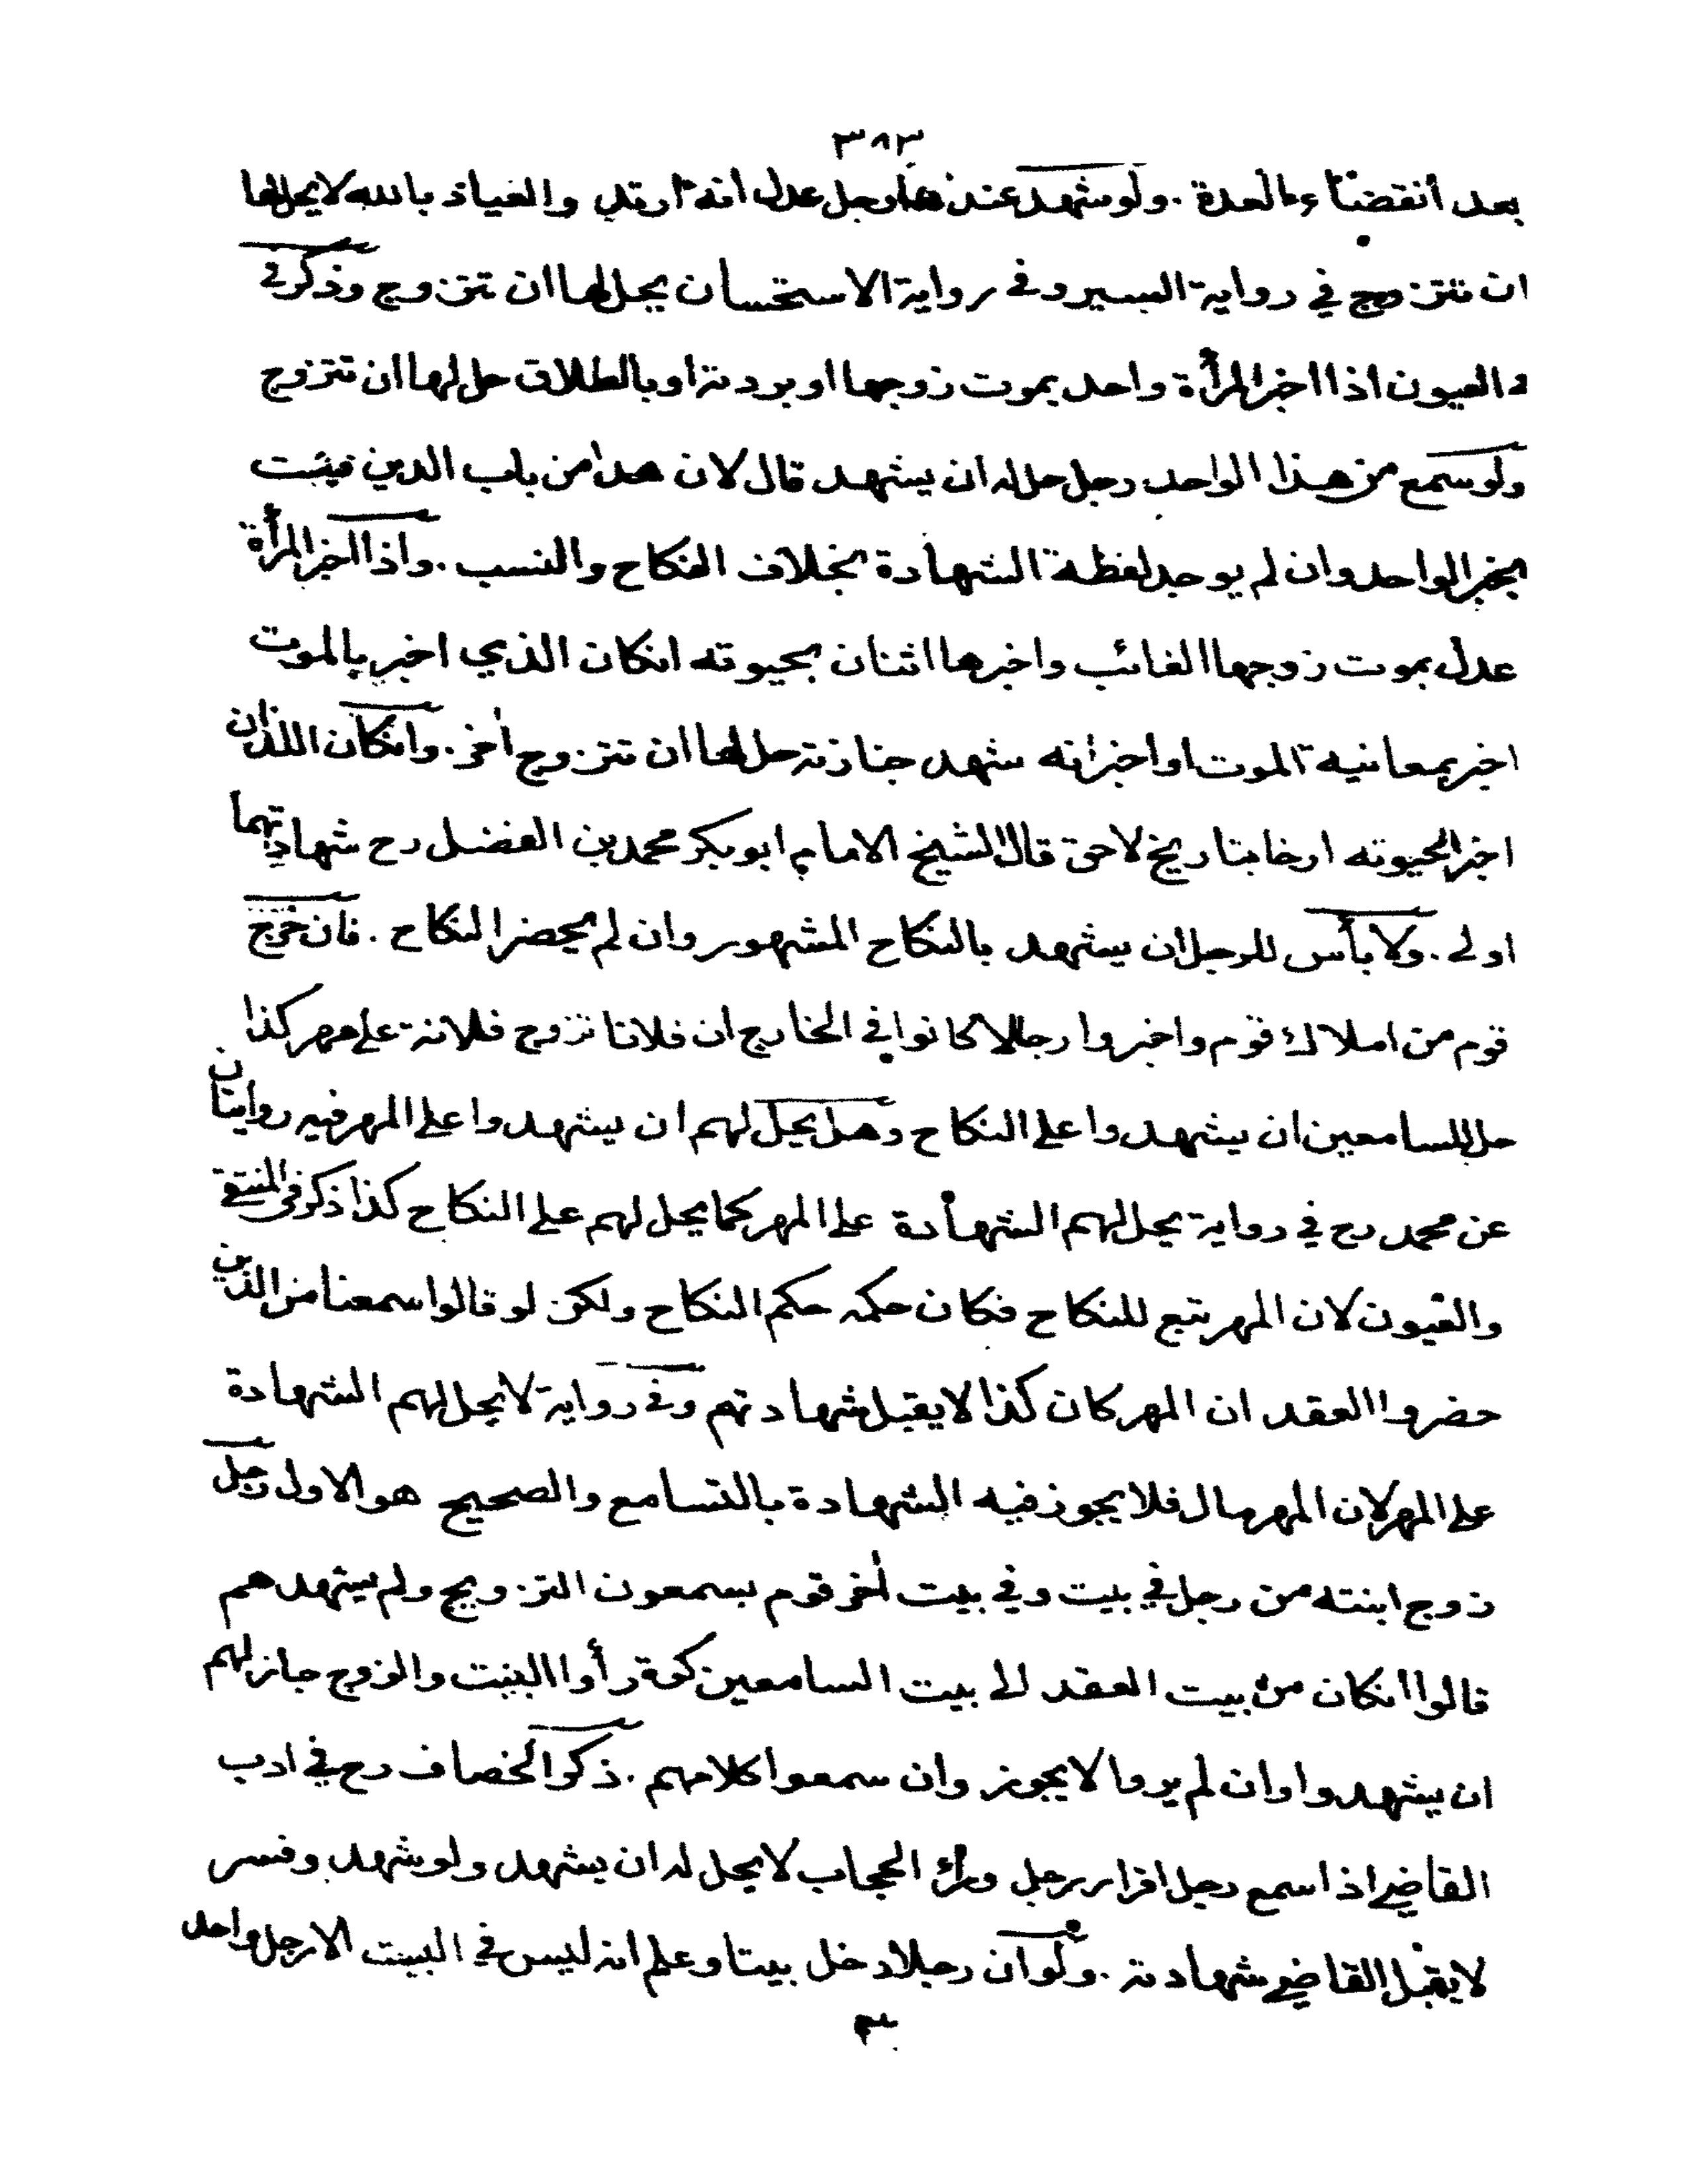 ٣٨٣
بعد انقضاء العدة . ولو شهد عندها رجل عدل انه ارتد والعياذ بالله لا يحل لها
ان تتزوج في رواية السير وفي رواية الاستحسان يحل لها ان تتزوج وذكر في
العيون اذا اخبر المرأة واحد بموت زوجها او بردته او بالطلاق حل لها ان تتزوج
ولو سمع من هذا الواحد رجل حل له ان يشهد قال لان هذا من باب الدين فيثبت
بخبر الواحد وان لم يوجد لفظة الشهادة بخلاف النكاح والنسب . واذا اخبر المرأة
عدل بموت زوجها الغائب واخبرها اثنان بحيوته انكان الذي اخبر بالموت
اخبر بمعانية الموت او اخبر انه شهد جنازته حل لها ان تتزوج اخر . وانكان اللذان
اخبرا بحيوته ارخا بتاريخ لاحق قال الشيخ الامام ابو بكر محمد بن الفضل رح شهادتهما
اولى . ولا بأس للرجل ان يشهد بالنكاح المشهور وان لم يحضر النكاح . فان خرج
قوم من املاك قوم واخبروا رجالا كانوا في الخارج ان فلانا تزوج فلانة على مهر كذا
حل للسامعين ان يشهدوا على النكاح وهل يحل لهم ان يشهدوا على المهر فيه روايتان
عن محمد رح في رواية يحل لهم الشهادة على المهر كما يحل لهم على النكاح كذا ذكر في المنتقى
والعيون لان المهر تبع للنكاح فكان حكمه حكم النكاح ولكن لو قالوا سمعنا من الذين
حضروا العقد ان المهر كان كذا لا يقبل شهادتهم وفي رواية لا يحل لهم الشهادة
على المهر لان المهر مال فلا يجوز فيه الشهادة بالتسامع والصحيح هو الاول رجل
زوج ابنته من رجل في بيت وفي بيت اخر قوم يسمعون التزويج ولم يشهدهم
قالوا انكان من بيت العقد الى بيت السامعين كوة رأوا البنت والزوج جاز لهم
ان يشهدوا وان لم يروا لا يجوز وان سمعوا كلامهم . ذكر الخصاف رح في ادب
القاضي اذا سمع رجل اقرار رجل وراء الحجاب لا يحل له ان يشهد ولو شهد وفسر
لا يقبل القاضي شهادته . ولو ان رجلا دخل بيتا وعلم انه ليس في البيت الا رجل واحد